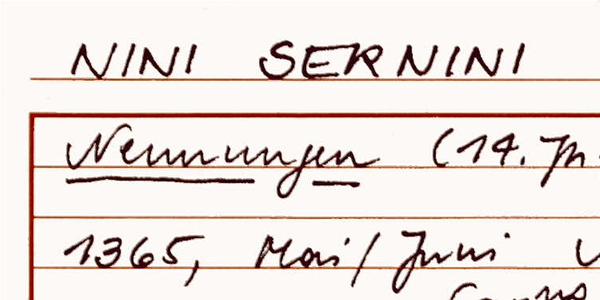 NINI SERNINI
Nennungen (14. Jh.
1365, Mai/Juni